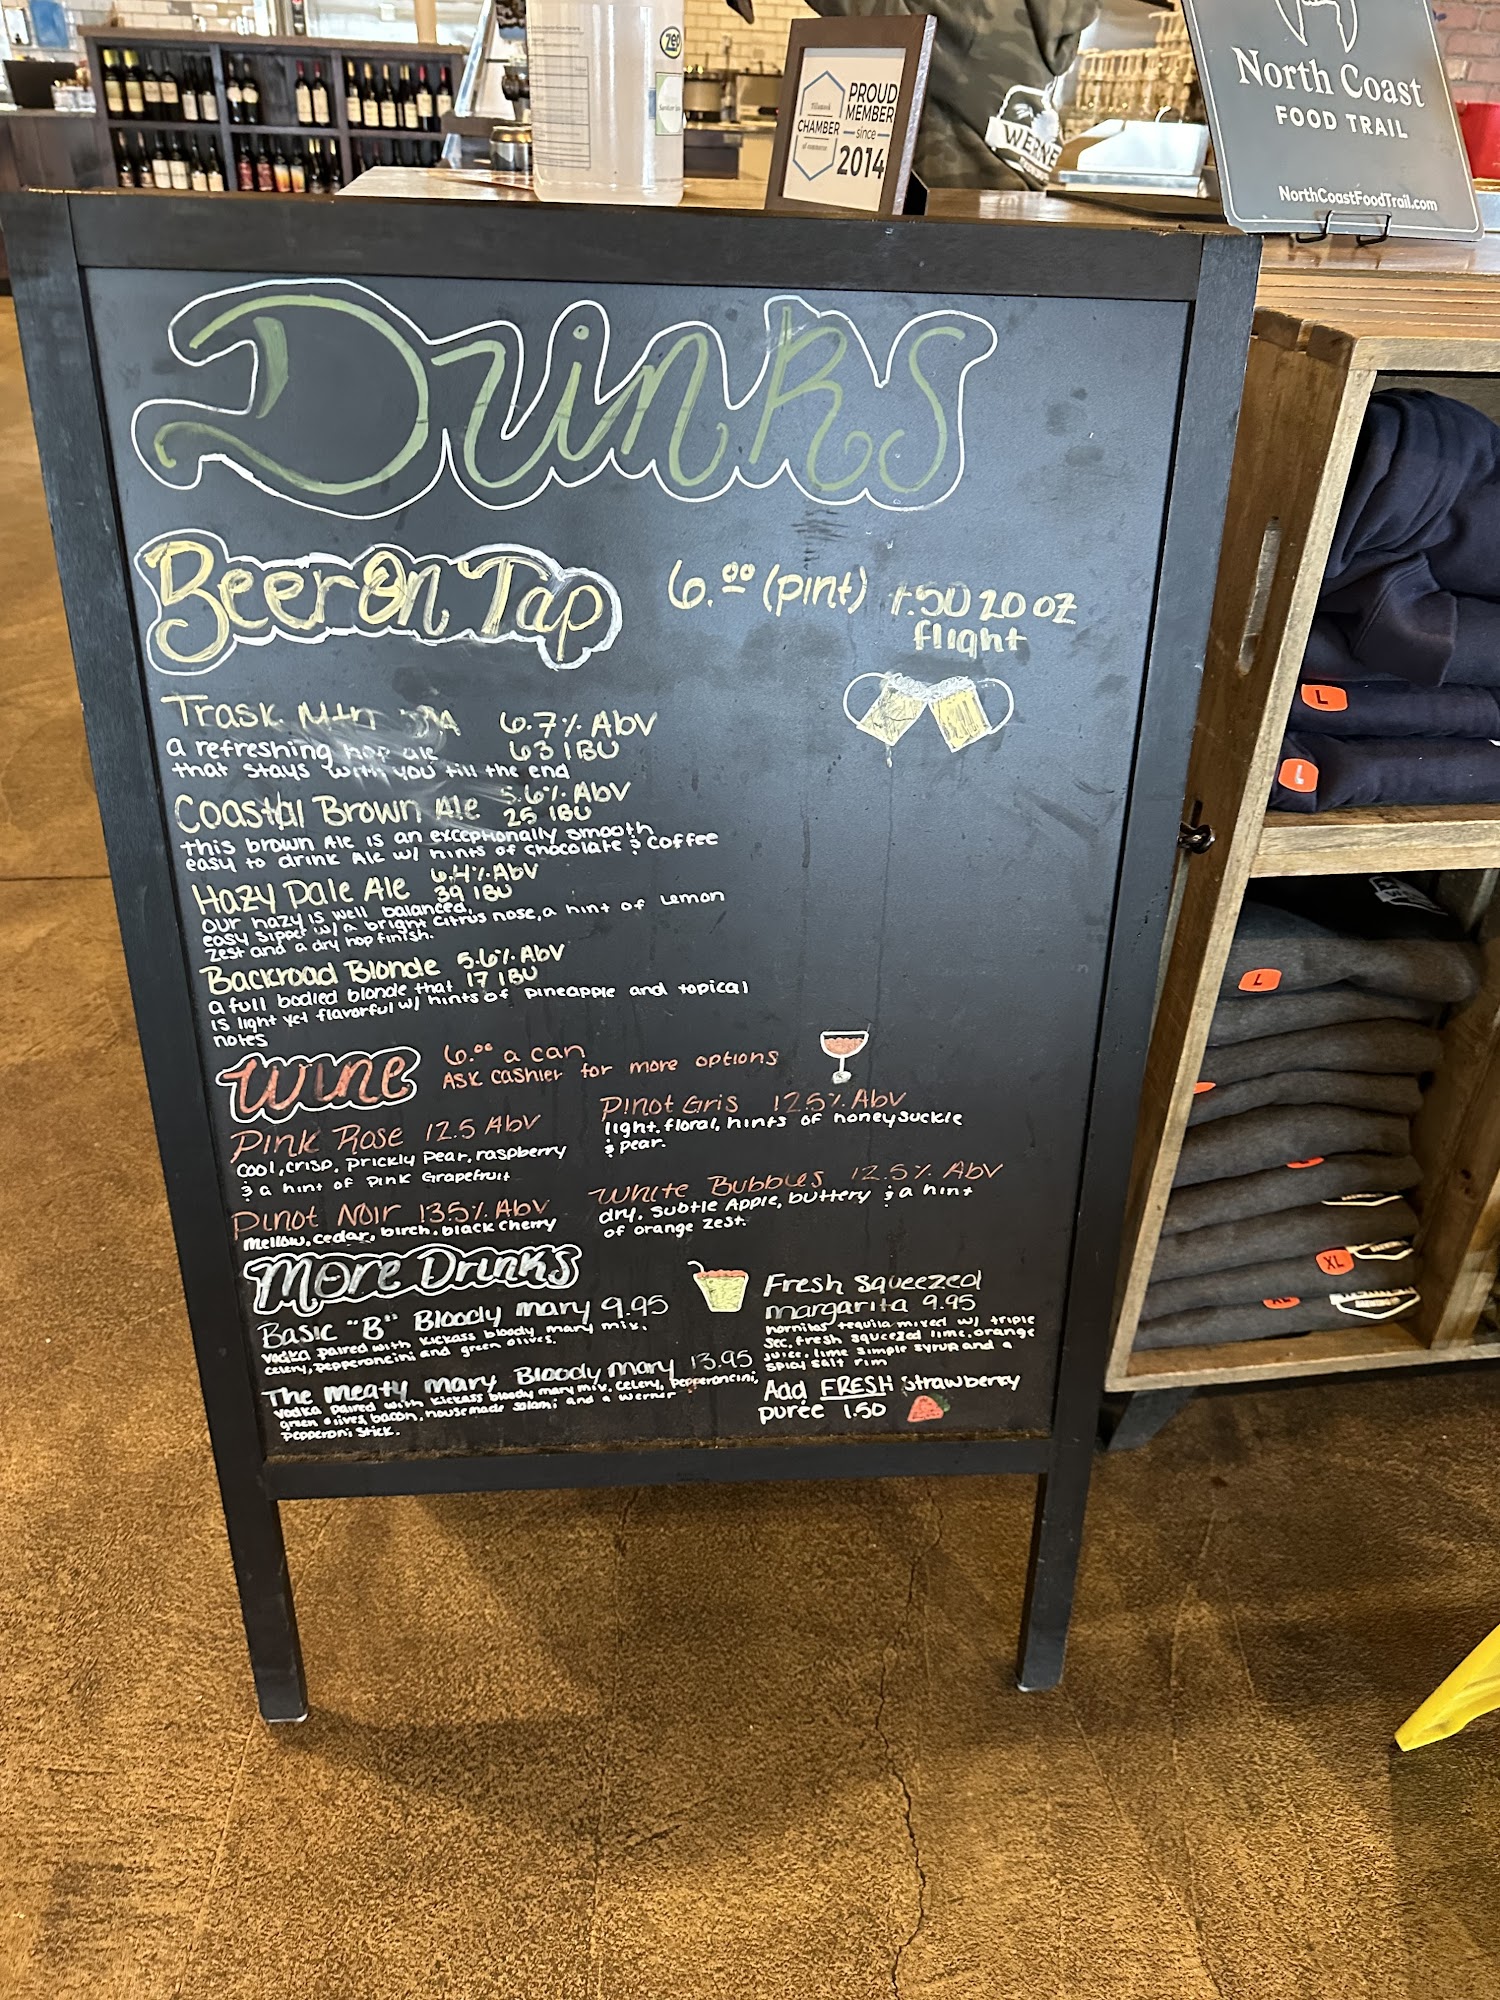 zep
Tillamook
CHAMBER
of commerce
PROUD
MEMBER
since
2014
WERNE
North Coast
FOOD TRAIL
NorthCoastFoodTrail.com
Drinks
Beer On Tap
6.00 (pint) 1.50 20 oz
flight
Trask Mtn IPA 6.7% AbV
63 IBU
a refreshing hop ale
that stays with you till the end
Coastal Brown Ale 5.6% AbV
25 IBU
this brown Ale is an exceptionally smooth
easy to drink Ale w/ hints of chocolate & coffee
Hazy Pale Ale 6.4% AbV
39 IBU
our hazy is well balanced,
easy sipper w/ a bright citrus nose, a hint of Lemon
zest and a dry hop finish.
Backroad Blonde 5.6% AbV
17 IBU
a full bodied blonde that
is light yet flavorful w/ hints of pineapple and topical
notes
Wine
6.00 a can
Ask cashier for more options
Pink Rose 12.5 AbV
cool, crisp, prickly pear, raspberry
& a hint of pink Grapefruit
Pinot Gris 12.5% AbV
light, floral, hints of honeysuckle
& pear.
Pinot Noir 13.5% AbV
mellow, cedar, birch, black cherry
White Bubbles 12.5% AbV
dry, subtle Apple, buttery & a hint
of orange zest.
More Drinks
Basic "B" Bloody mary 9.95
vodka paired with kickass bloody mary mix,
celery, pepperoncini and green olives.
The meaty mary Bloody mary 13.95
vodka paired with kickass bloody mary mix, celery, pepperoncini,
green olives, bacon, housemade salami and a werner
pepperoni stick.
Fresh Squeezed
margarita 9.95
hornitos tequila mixed w/ triple
sec, fresh squeezed lime, orange
juice, lime simple syrup and a
spicy salt rim
Add FRESH strawberry
puree 1.50
L
L
L
XL